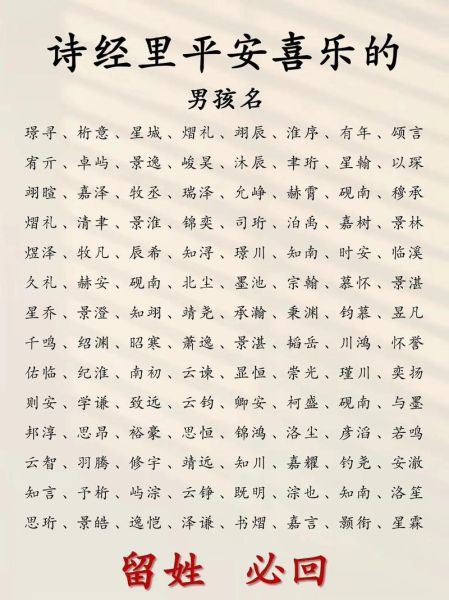 诗经里平安喜乐的
男孩名
璟寻、析意、星城、熠礼、翊辰、淮序、有年、颂言
宥亓、卓屿、景逸、峻昊、沐辰、聿珩、星翰、以琛
翊暄、嘉泽、牧丞、瑞泽、允峥、赫霄、砚南、穆承
熠礼、清聿、景淮、锦奕、司珩、泊禹、嘉树、景林
煜泽、牧凡、辰希、知浔、璟川、知南、时安、临溪
久礼、赫安、砚南、北尘、墨池、宗翰、慕怀、景湛
星乔、景澄、知翊、靖尧、承瀚、秉渊、钧慕、昱凡
千鸣、绍渊、昭寒、萧逸、景湛、韬岳、川鸿、怀誉
佑临、纪淮、南初、云谏、显恒、崇光、瑾川、奕扬
则安、学谦、致远、云钧、卿安、柯盛、砚南、与墨
邦淳、思昂、裕豪、思恒、锦鸿、洛尘、彦滔、若鸣
云智、羽腾、修宇、靖远、知川、嘉耀、钓尧、安澈
知言、予桁、屿淙、云铮、既明、淙也、知南、洛笙
思珩、景皓、逸恺、泽谦、书熠、嘉言、颢衔、星霖
留姓 必回